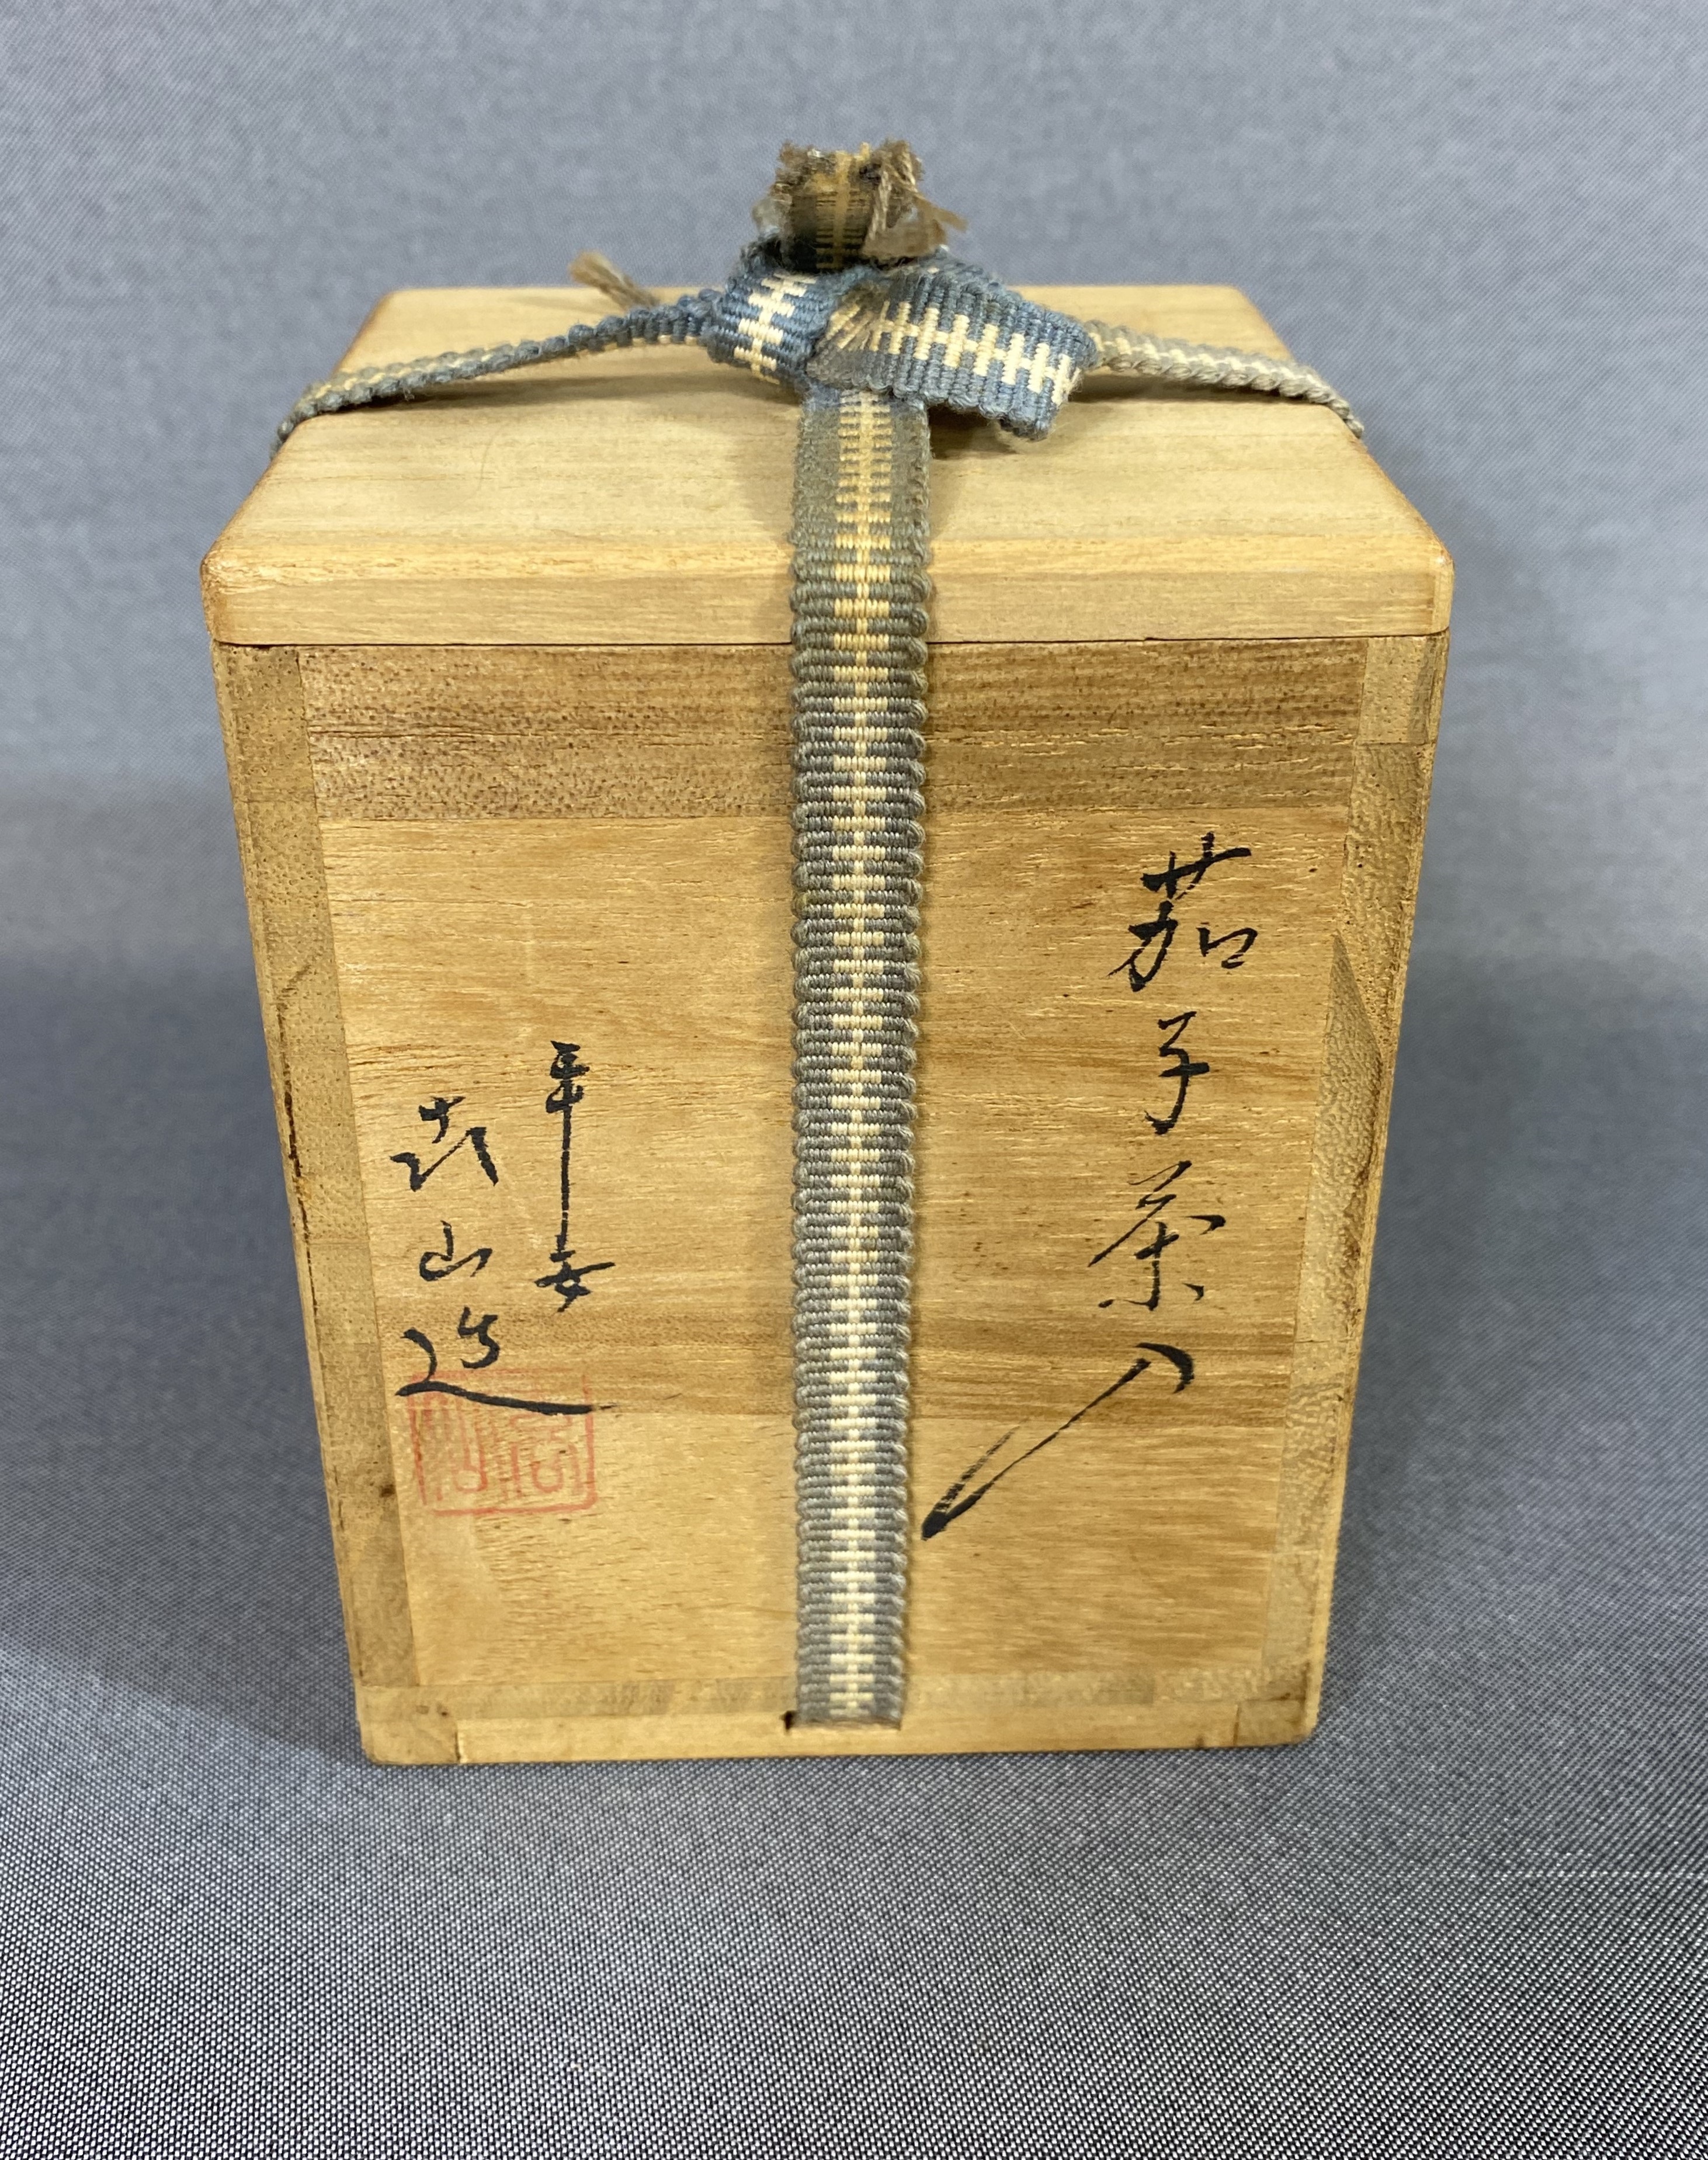 茄子茶入
平安
山造